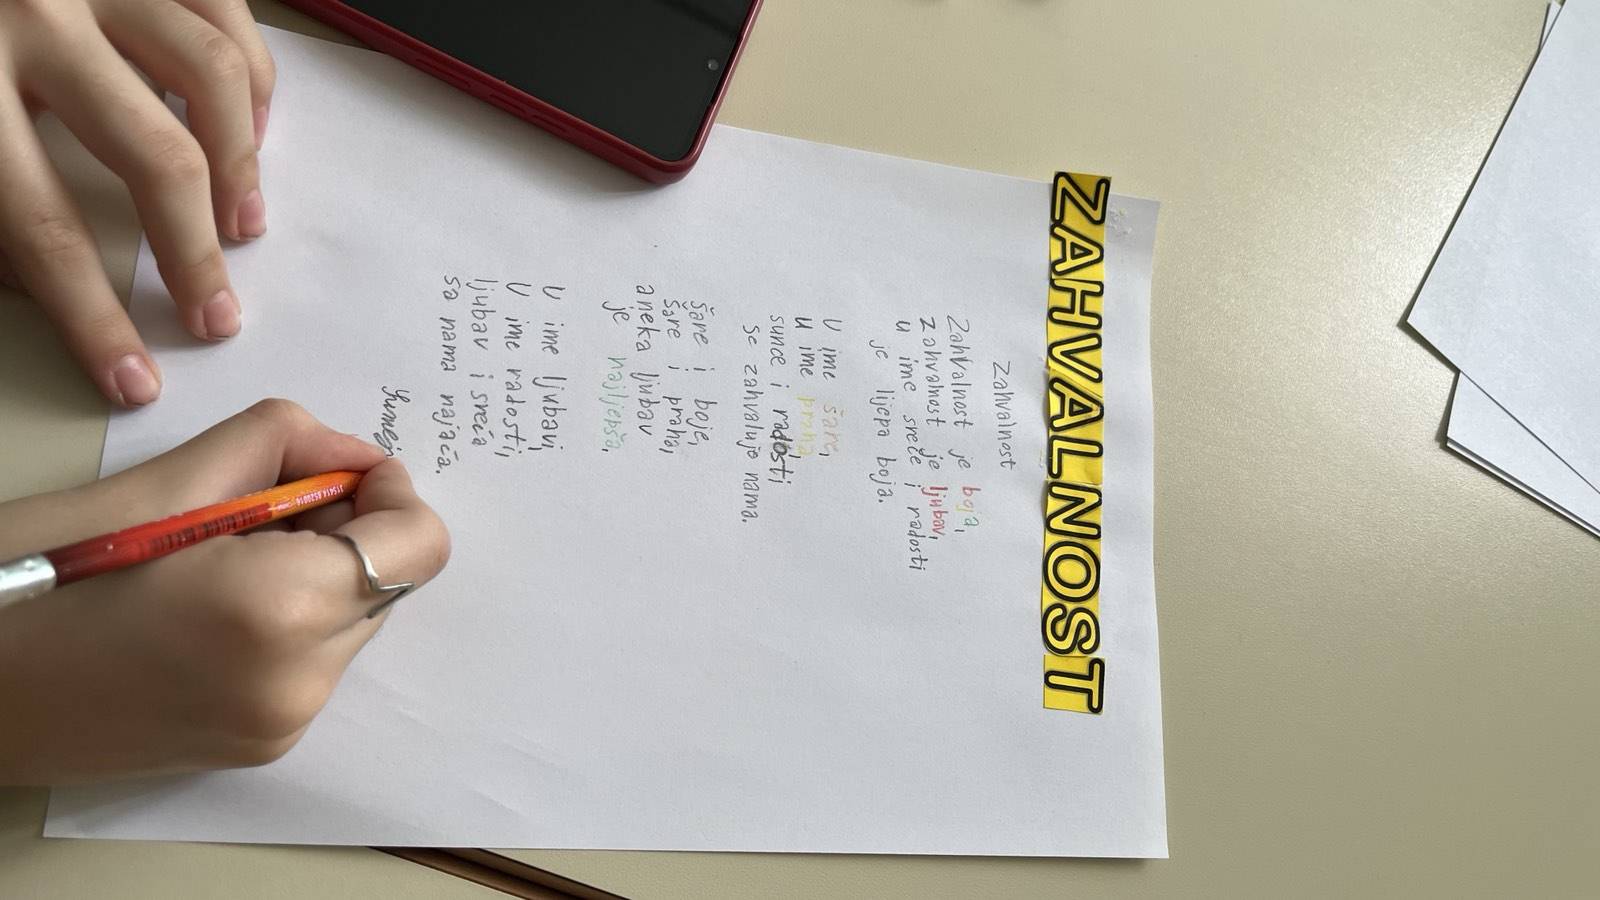 ZAHVALNOST
Zahvalnost
Zahvalnost je boja,
zahvalnost je ljubav,
u ime sreće i radosti
je lijepa boja.
U ime šare,
u ime praha,
sunce i radosti
se zahvaljuje nama.
šare i boje,
šare i praha,
aneka ljubav
je najljepša.
U ime ljubavi,
U ime radosti,
ljubav i sreća
sa nama najača.